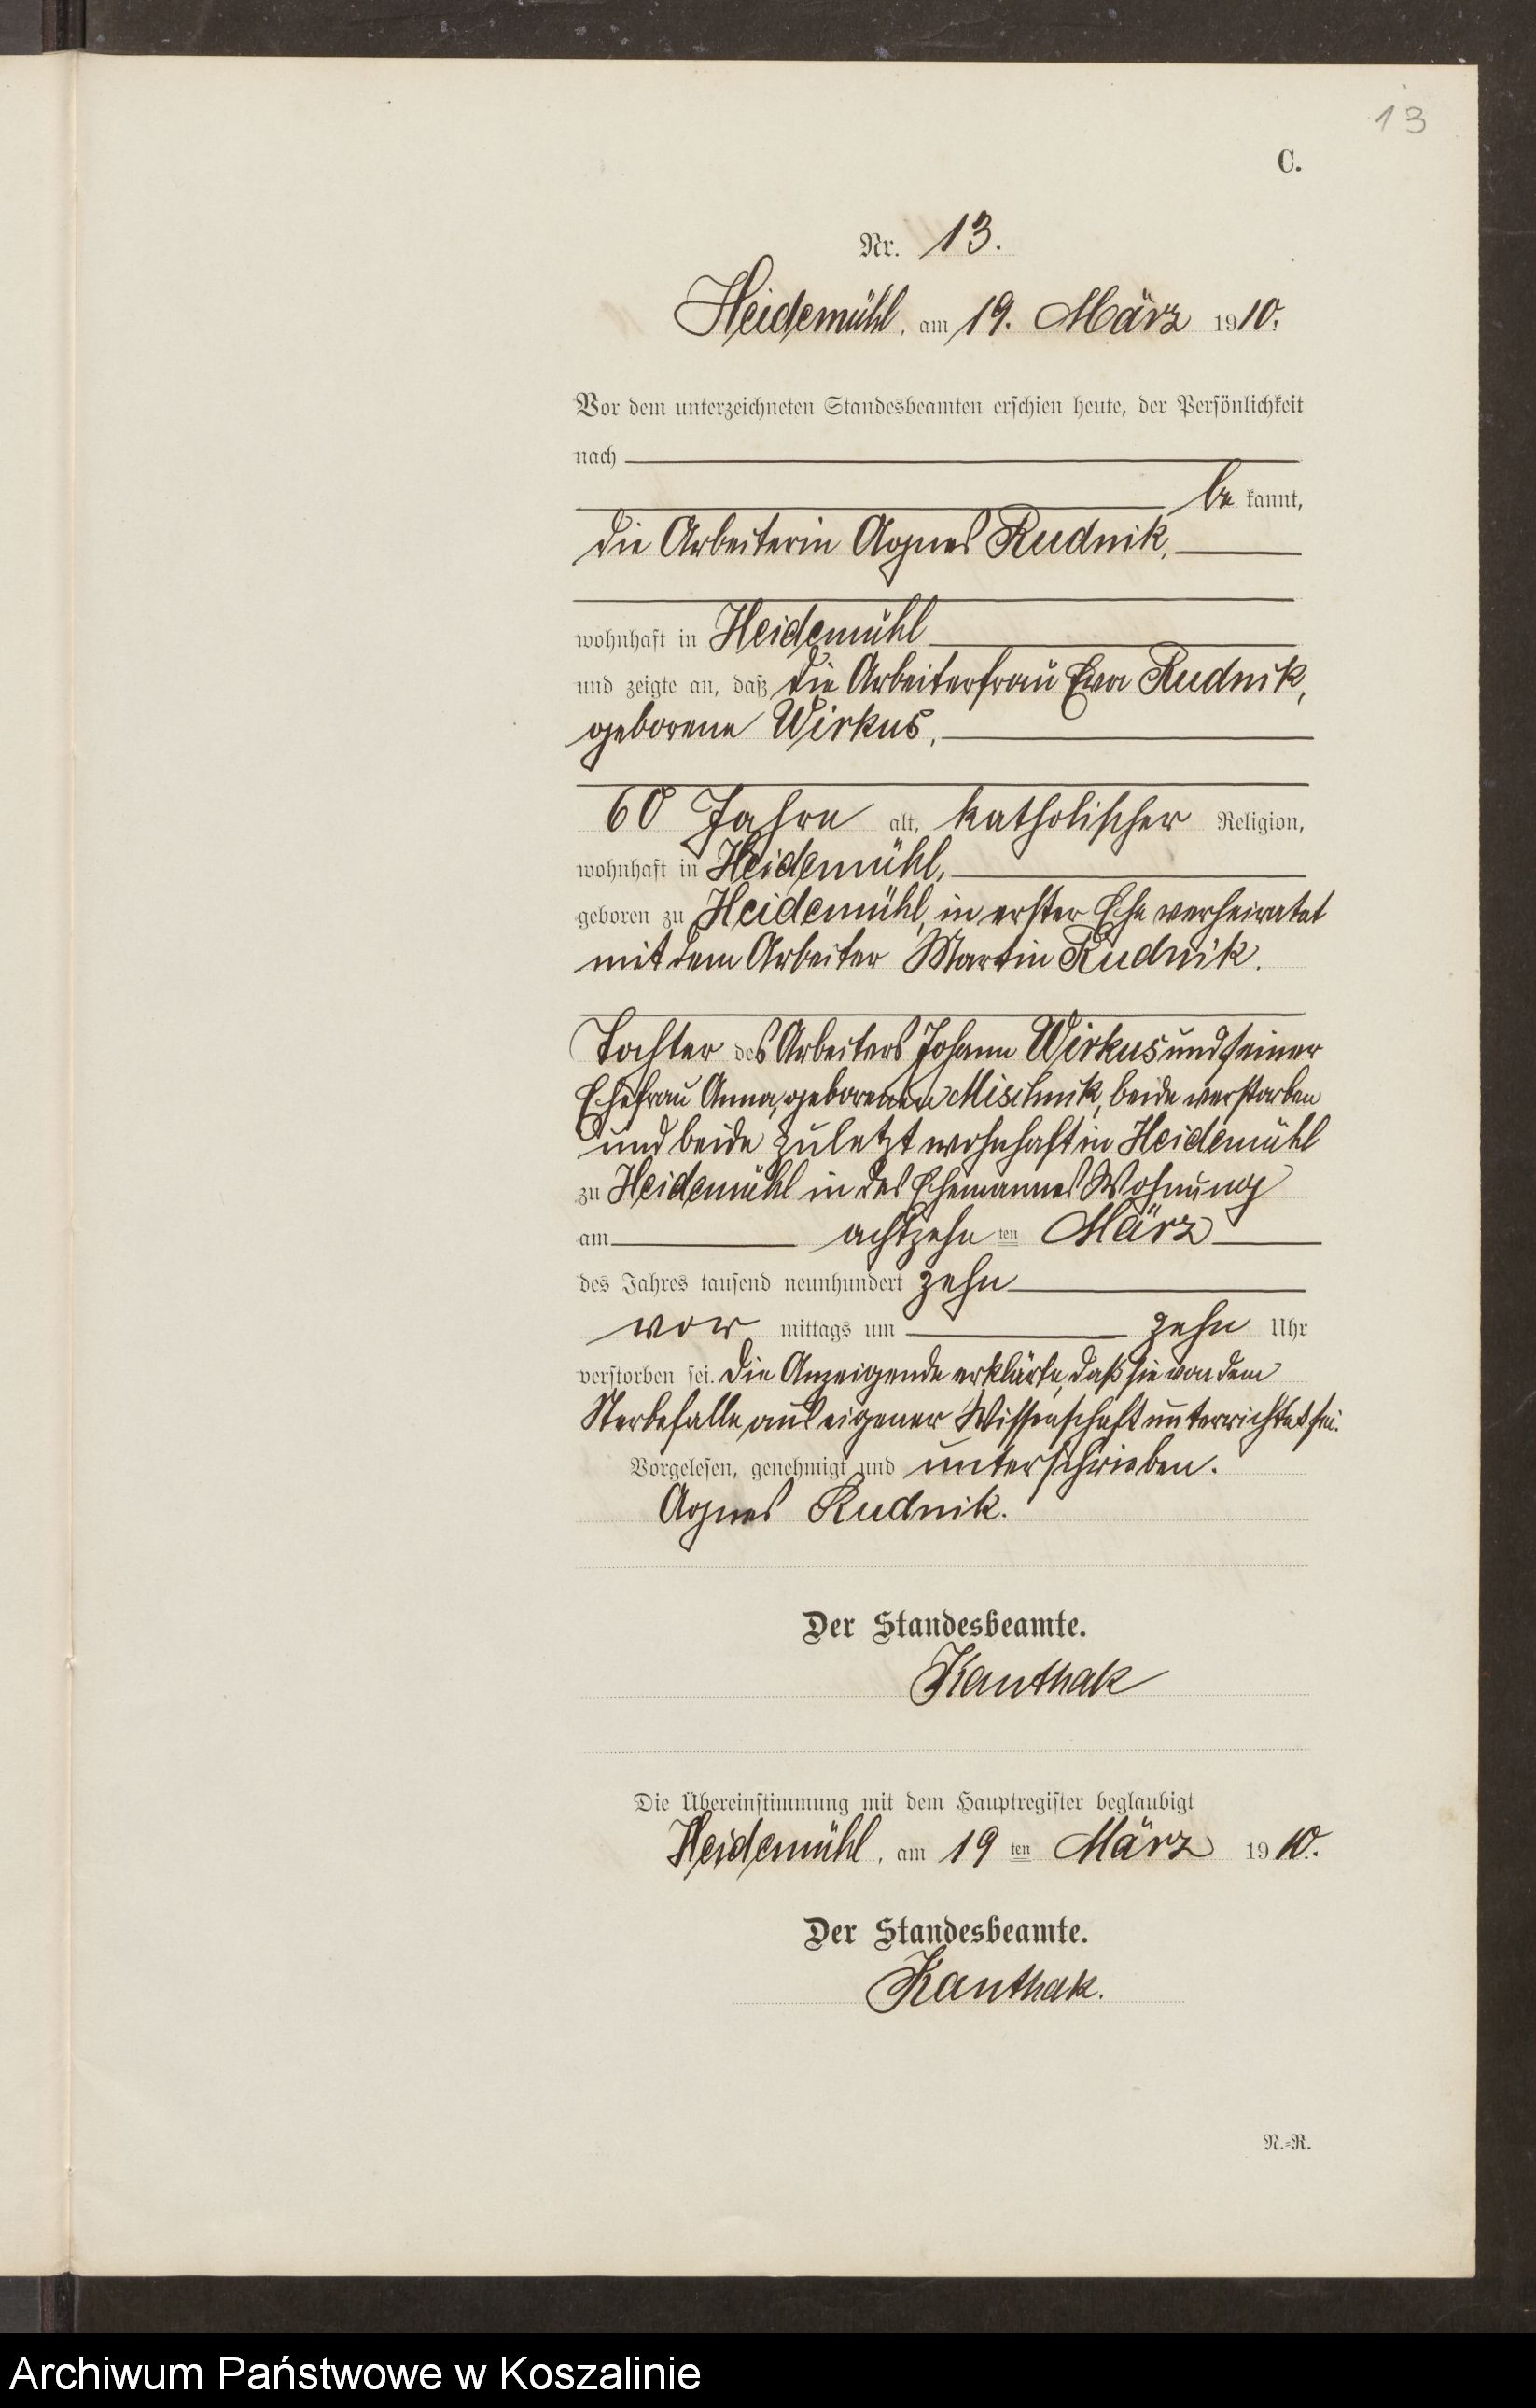 13
C.
Nr. 13.
Heidemühl, am 19. März 1910.
Vor dem unterzeichneten Standesbeamten erschien heute, der Persönlichkeit
nach
be kannt,
die Arbeiterin Agnes Rudnik,
wohnhaft in Heidemühl
und zeigte an, daß die Arbeiterfrau Eva Rudnik,
geborene Wirkus,
60 Jahre alt, katholischer Religion,
wohnhaft in Heidemühl,
geboren zu Heidemühl, in erster Ehe verheiratet
mit dem Arbeiter Martin Rudnik.
Tochter des Arbeiters Johann Wirkus und seiner
Ehefrau Anna, geborenen Mischnik, beide verstorben
und beide zuletzt wohnhaft in Heidemühl
zu Heidemühl in des Ehemannes Wohnung
am achtzehn ten März
des Jahres tausend neunhundert zehn
vor mittags um zehn Uhr
verstorben sei. Die Anzeigende erklärte, daß sie von dem
Sterbefalle aus eigener Wissenschaft unterrichtet sei.
Vorgelesen, genehmigt und unterschrieben.
Agnes Rudnik.
Der Standesbeamte.
Kanthak
Die Übereinstimmung mit dem Hauptregister beglaubigt
Heidemühl, am 19 ten März 1910.
Der Standesbeamte.
Kanthak.
N.-R.
Archiwum Państwowe w Koszalinie